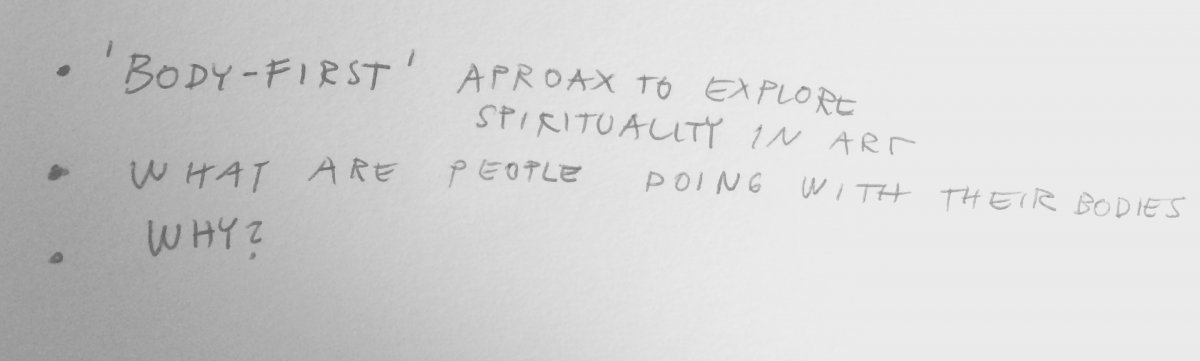 • 'BODY-FIRST' APROAX TO EXPLORE
SPIRITUALITY IN ART
• WHAT ARE PEOPLE DOING WITH THEIR BODIES
• WHY?